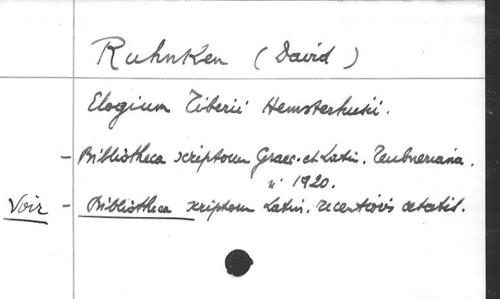 Ruhnken (David)
Elogium Tiberii Hemsterhusii.
- Bibliotheca scriptorum Graec. et Latin. Teubneriana.
n° 1920.
Voir - Bibliotheca scriptorum Latin. recentioris aetatis.